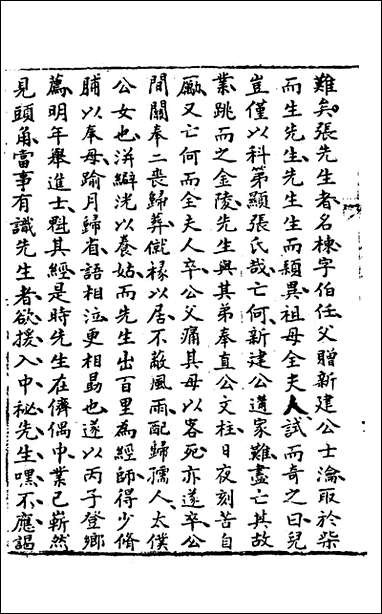 難矣張先生者名棟字伯任父贈新建公士瀹取於柴
而生先生先生生而穎異祖母全夫人試而奇之曰兒
豈僅以科第顯張氏哉亡何新建公遘家難盡亡其故
業跳而之金陵先生與其弟奉直公文柱日夜刻苦自
勵又亡何而全夫人卒公父痛其母以客死亦遂卒公
間關奉二喪歸葬僦椽以居不蔽風雨配歸孺人太僕
公女也洴澼洸以養姑而先生出百里為經師得少脩
脯以奉母踰月歸省語相泣更相勗也遂以丙子登鄉
薦明年舉進士魁其經是時先生在儕偶中業已嶄然
見頭角當事有識先生者欲援入中祕先生嘿不應謁